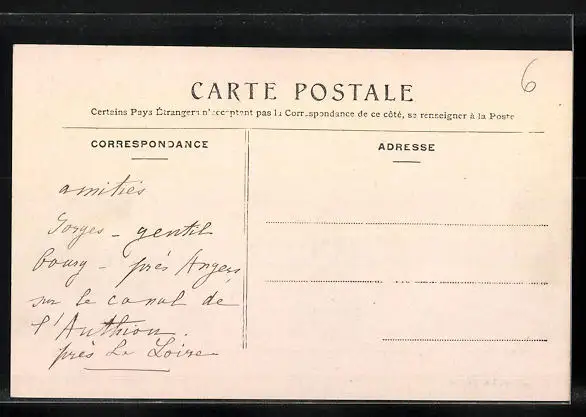 6
CARTE POSTALE
Certains Pays Étrangers n'acceptent pas la Correspondance de ce côté, se renseigner à la Poste
CORRESPONDANCE
ADRESSE
amitiés
Sorges - gentil
bourg - près Angers
sur le canal de
l'Authion.
près La Loire